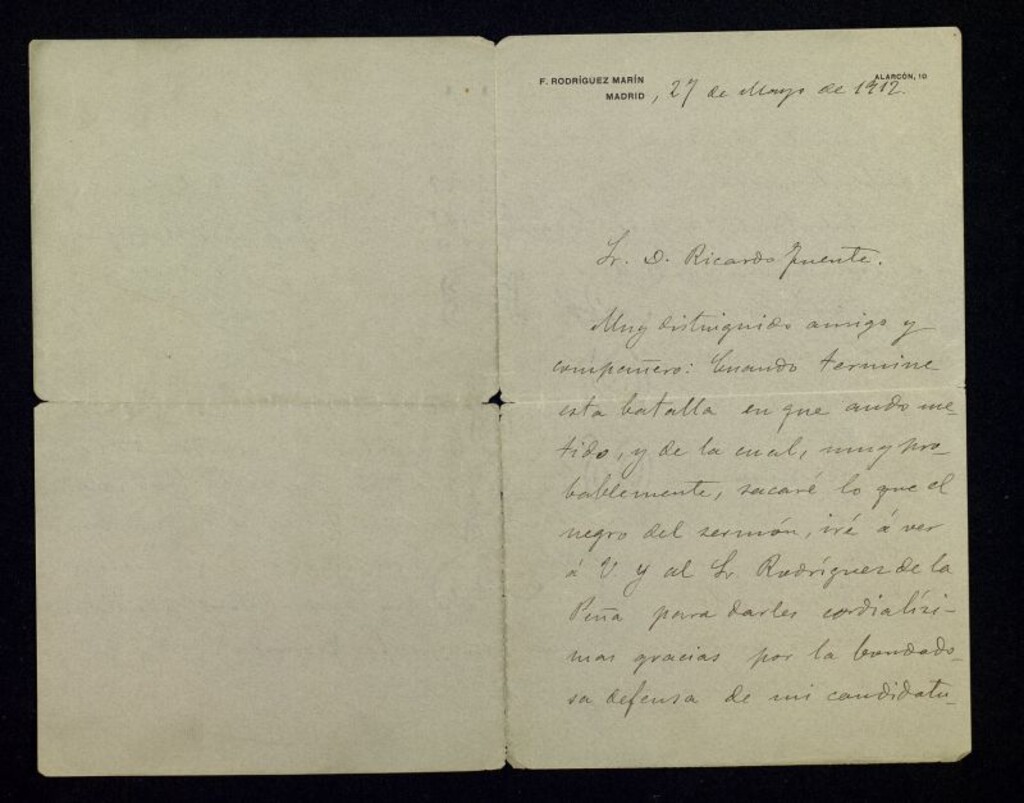 F. RODRÍGUEZ MARÍN
ALARCÓN, 10
MADRID, 27 de Mayo de 1912.
Sr. D. Ricardo Fuente.
Muy distinguido amigo y
compañero: Cuando termine
esta batalla en que ando me-
tido, y de la cual, muy pro-
bablemente, sacaré lo que el
negro del sermón, iré á ver
á V. y al Sr Rodríguez de la
Peña para darles cordialísi-
mas gracias por la bondado-
sa defensa de mi candidatu-